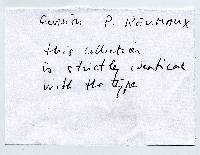 P. REUMAUX
this collection
is strictly identical
with the type